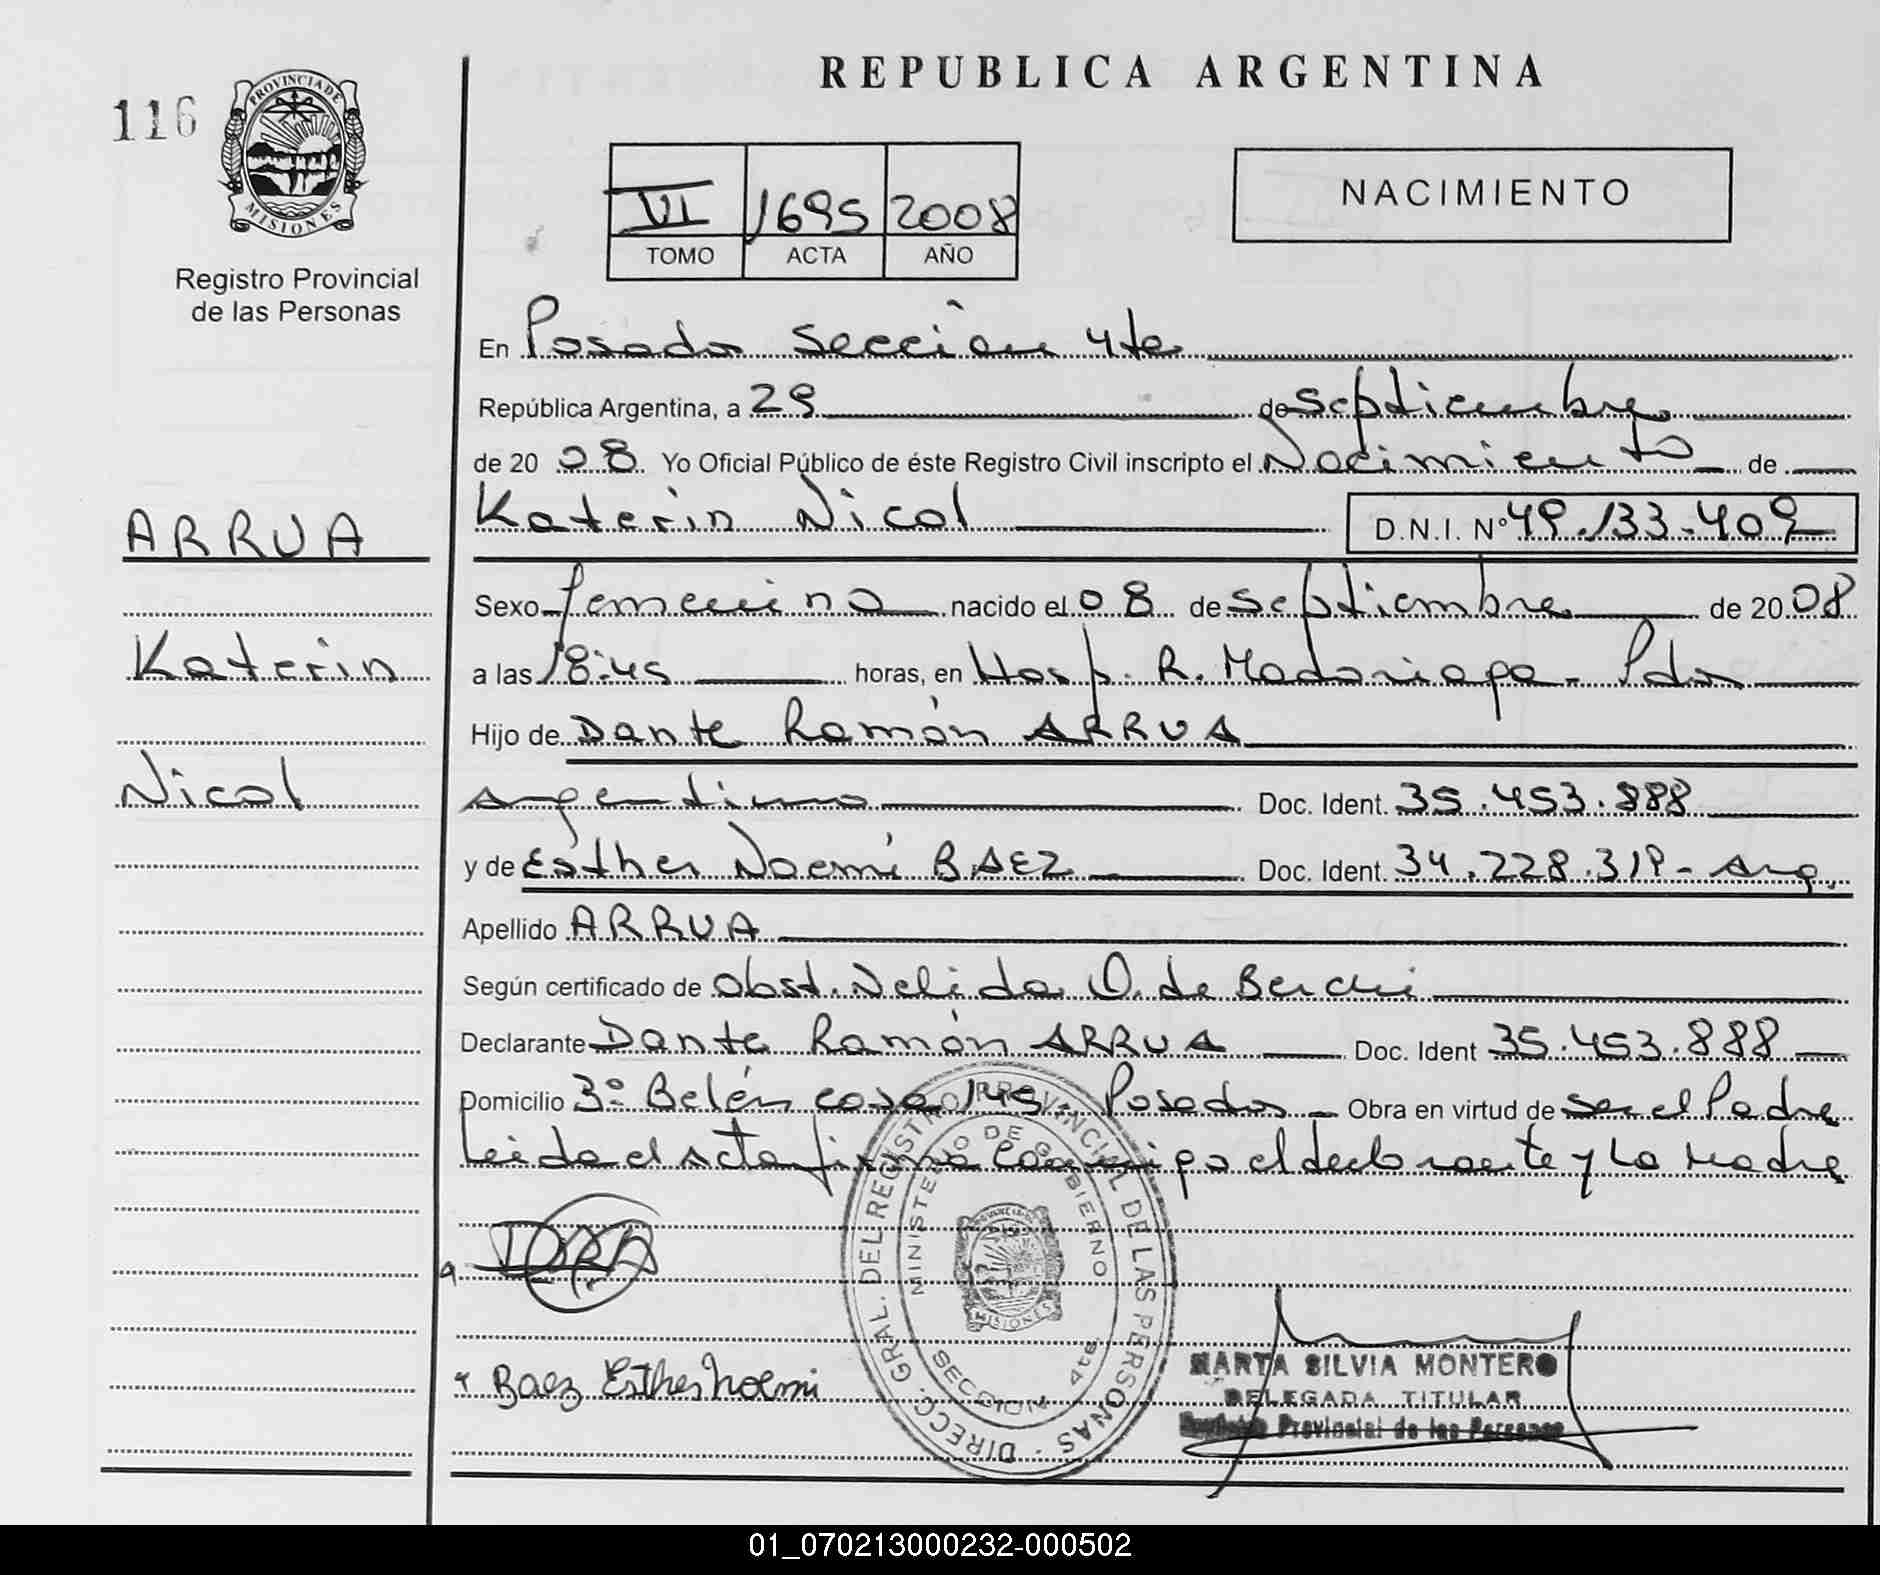 REPUBLICA ARGENTINA
116
PROVINCIA DE
MISIONES
Registro Provincial
de las Personas
VI 1695 2008
TOMO ACTA AÑO
NACIMIENTO
En Posadas Sección 4ta
República Argentina, a 29 de Septiembre
de 20 08 Yo Oficial Público de éste Registro Civil inscripto el Nacimiento de
Katerin Nicol D.N.I. Nº 49.133.409
ARRUA
Katerin
Nicol
Sexo femenino nacido el 08 de Septiembre de 20 08
a las 18:45 horas, en Hosp. R. Madariaga - Pdas
Hijo de Dante Ramón ARRUA
Argentino Doc. Ident. 35.453.888
y de Esther Noemí BAEZ Doc. Ident. 34.228.319 - Arg.
Apellido ARRUA
Según certificado de Obst. Nelida O. de
Declarante Dante Ramón ARRUA Doc. Ident 35.453.888
Domicilio 3º Belén casa 145 Posadas - Obra en virtud de ser el Padre
Leida el Acta firma conmigo el declarante y La Madre
Baez Esther Noemi
DIRECC. GRAL. DEL REGISTRO PROVINCIAL DE LAS PERSONAS
MINISTERIO DE GOBIERNO
MISIONES
SECCION 4ta.
MARTA SILVIA MONTERO
DELEGADA TITULAR
Provincial de las Personas
01_070213000232-000502